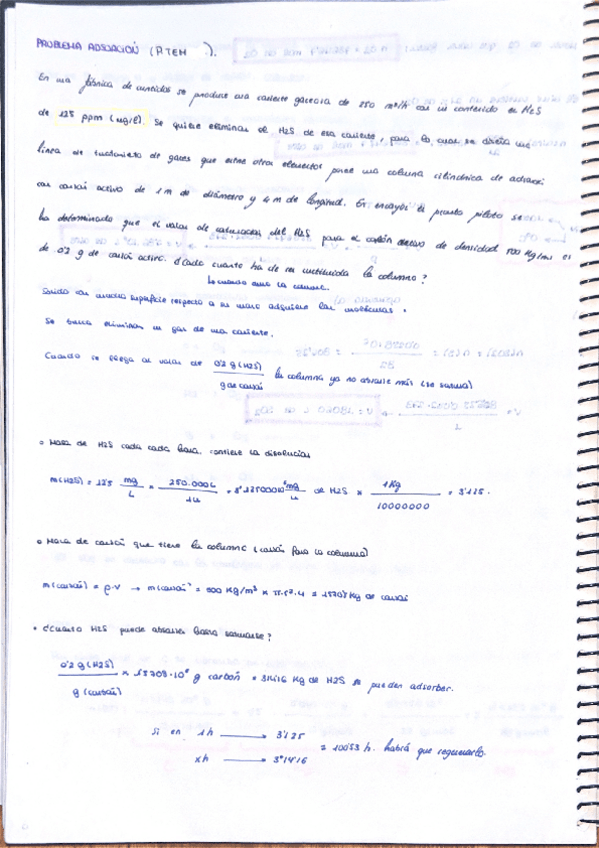 PROBLEMA ADSORCIÓN (P. TEH ).
En una fábrica de curtidos se produce una corriente gaseosa de 250 m³/h con un contenido en H2S
de 125 ppm (mg/L). Se quiere eliminar el H2S de esa corriente, para lo cual se diseña una
línea de tratamiento de gases que entre otros elementos posee una columna cilíndrica de adsorción
con carbón activo de 1 m de diámetro y 4 m de longitud. En ensayos en planta piloto se
ha determinado que el valor de saturación del H2S para el carbón activo de densidad 500 Kg/m³ es
de 0'2 g de carbón activo. ¿Cada cuanto ha de ser sustituida la columna?
Sólido con mucha superficie respecto a su masa adquiere las moléculas.
Se busca eliminar un gas de una corriente.
Cuando se llega al valor de 0'2 g (H2S) / g de carbón la columna ya no absorbe más (se satura)
o Masa de H2S cada cada hora contiene la disolución
m(H2S) = 125 mg/L × 250.000L/1h = 3'125·10⁶ mg/h de H2S × 1Kg/10000000 = 3'125.
o Masa de carbón que tiene la columna (carbón para la columna)
m(carbón) = ρ·V → m(carbón) = 500 Kg/m³ × π·r²·4 = 1570'7 Kg de carbón
• ¿Cuánto H2S puede absorber hasta saturarse?
0'2 g (H2S) / g (carbón) × 1'5708·10⁶ g carbón = 314'16 Kg de H2S se pueden adsorber.
Si en 1h → 3'125
xh → 314'16
= 100'53 h. habrá que regenerarlo.